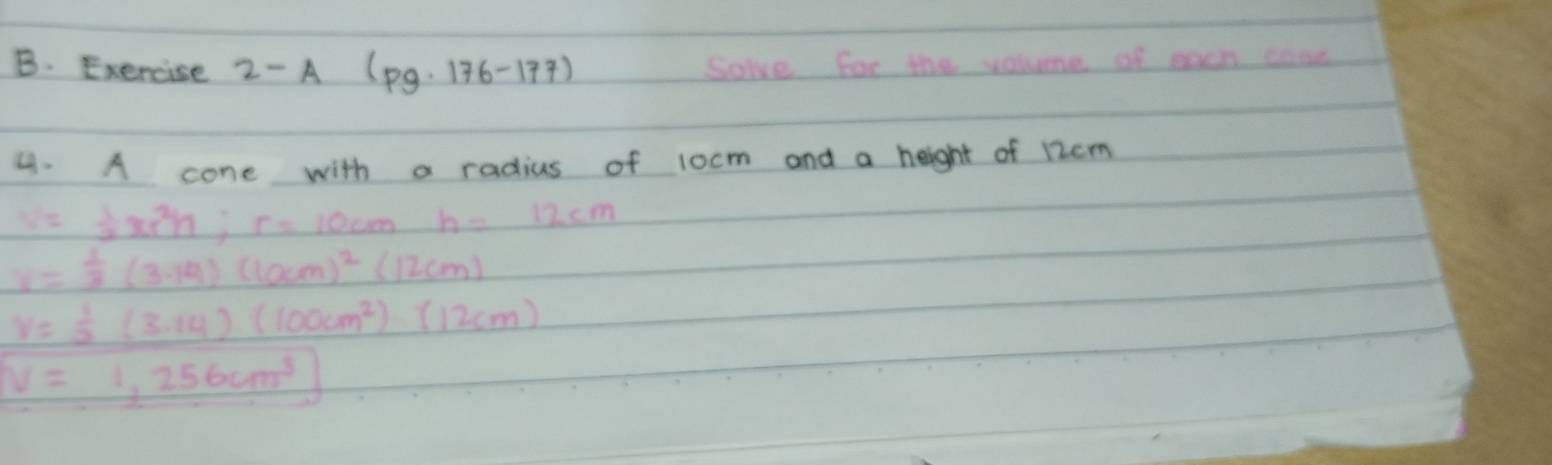 B. Exercise 2-A (pg. 176-177) Solve for the volume of each cone
4. A cone with a radius of 10cm and a height of 12cm
V = 1/3 πr²h ; r = 10cm h = 12cm
V = 1/3 (3.14) (10cm)² (12cm)
V = 1/3 (3.14) (100cm²) (12cm)
V = 1,256cm³